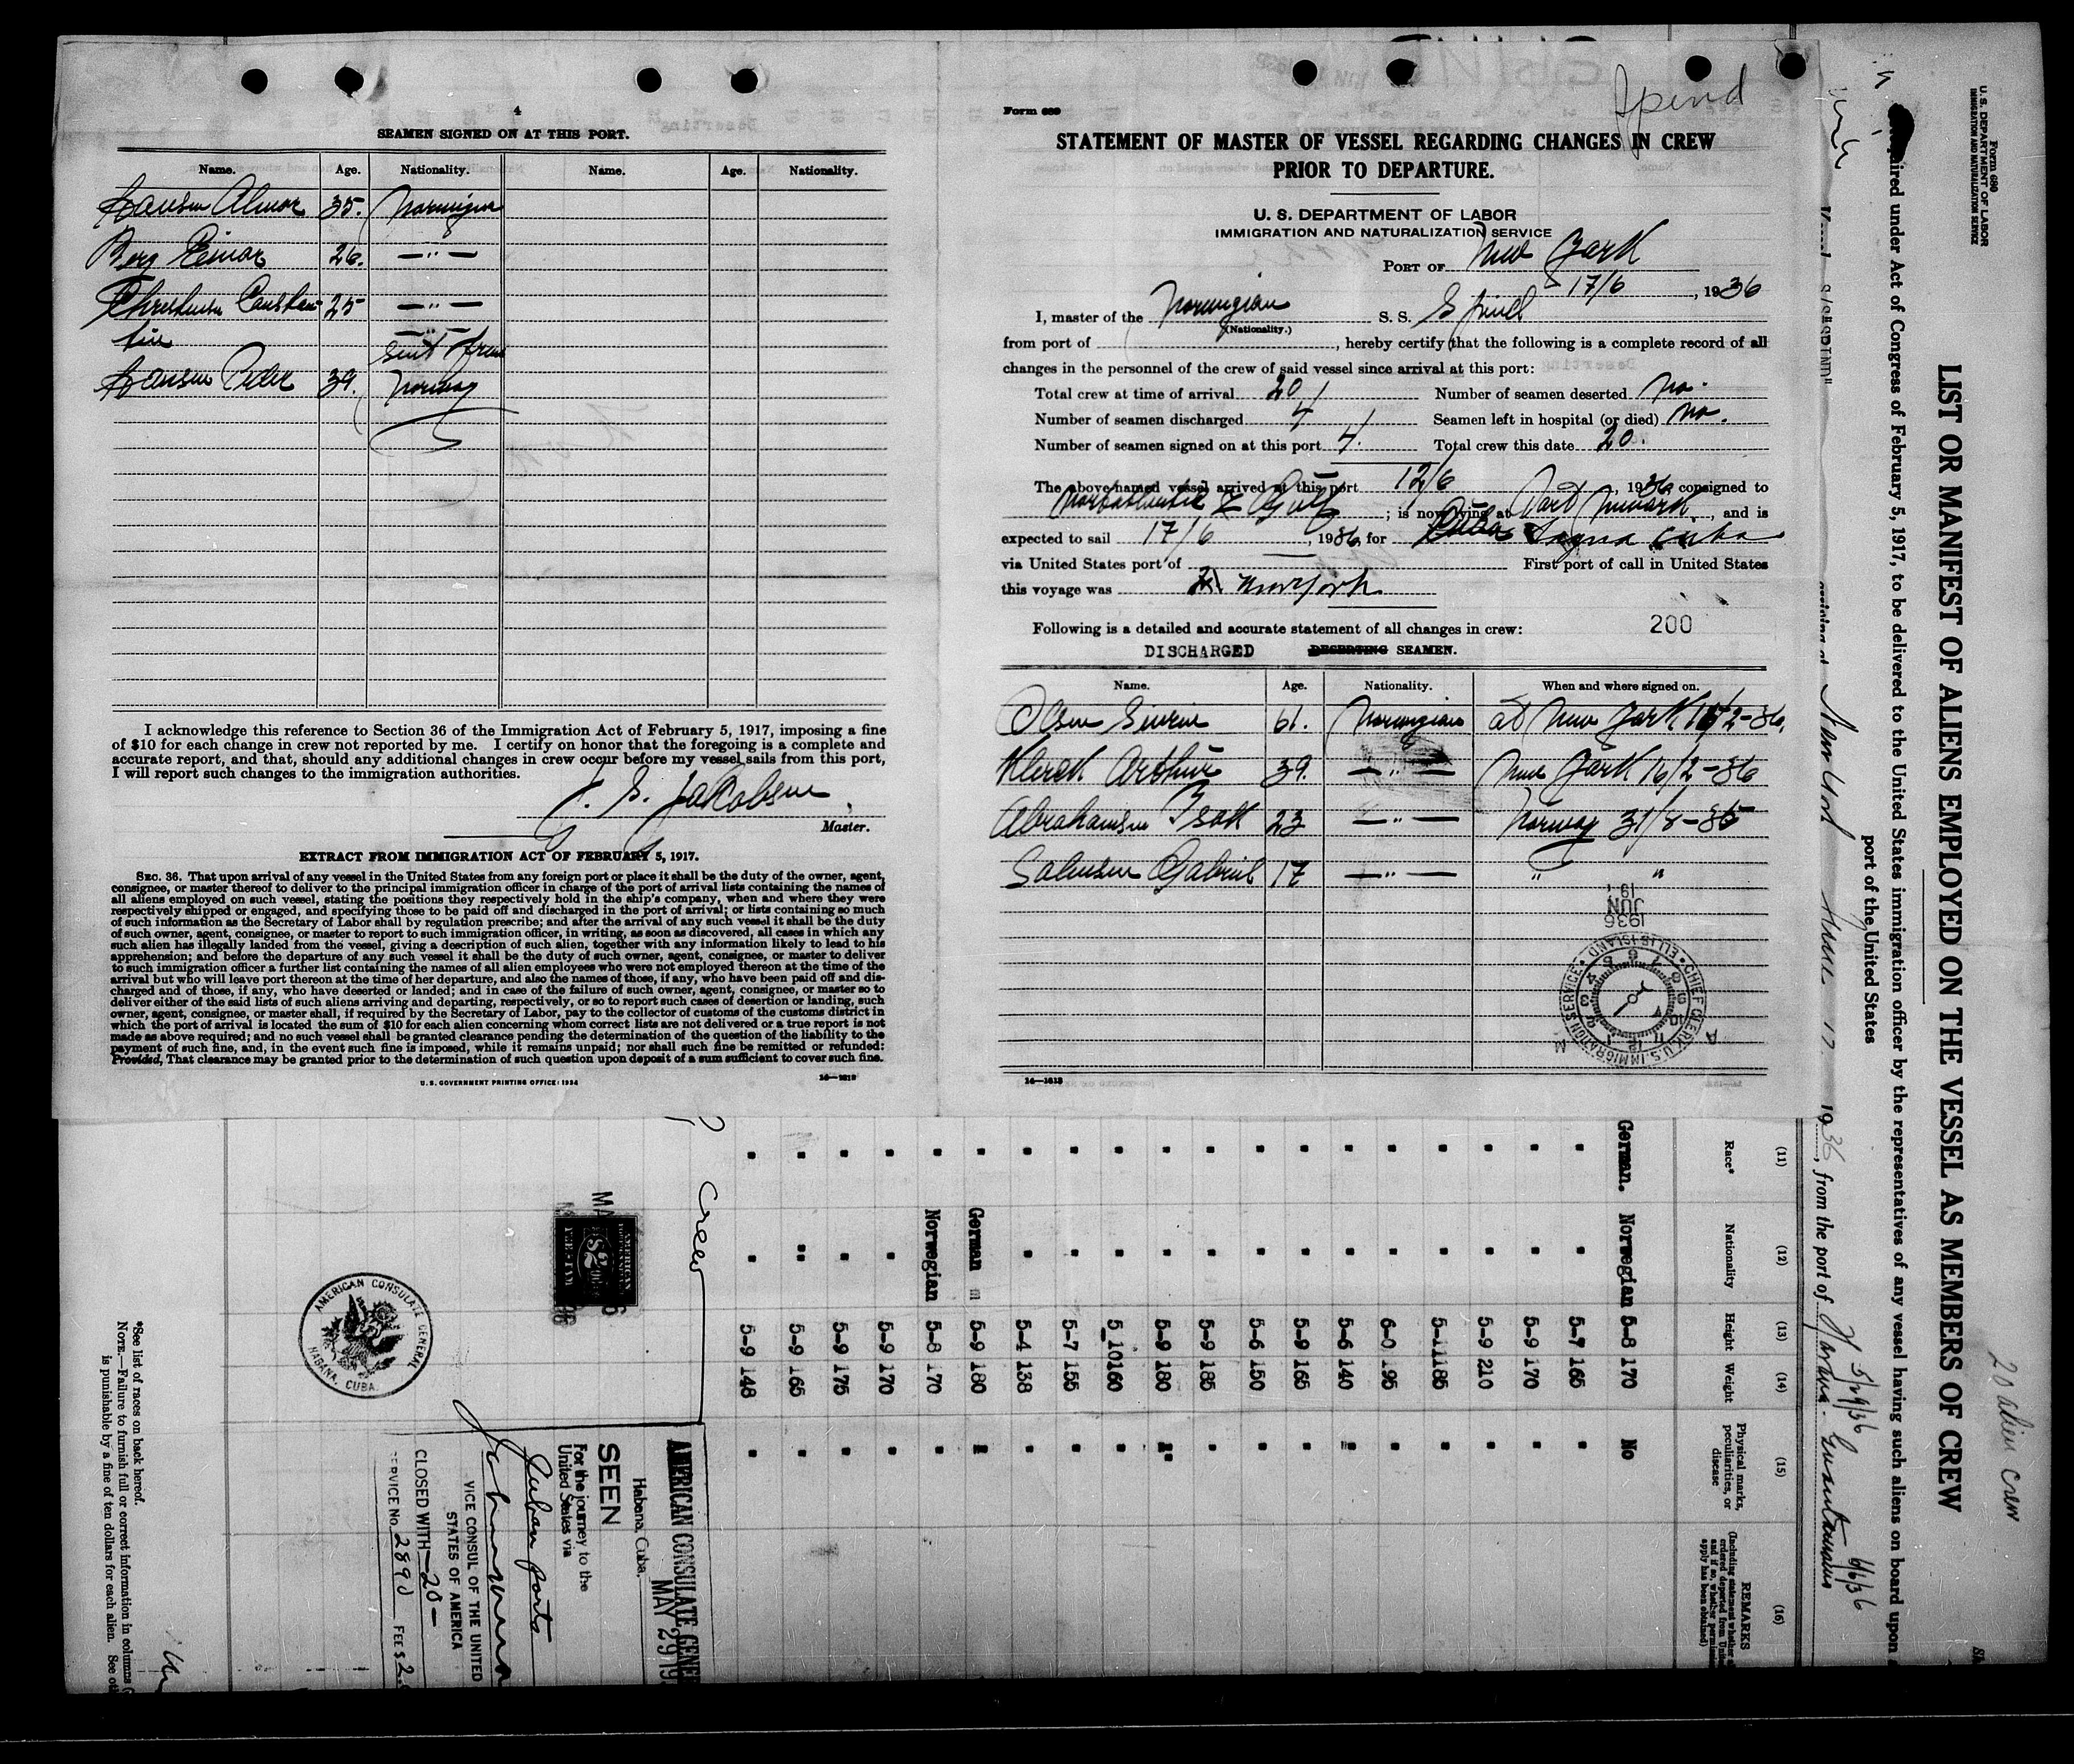 4
SEAMEN SIGNED ON AT THIS PORT.
Name. Age. Nationality. Name. Age. Nationality.
Hansen 35. Norwegian
Berg Einar 26. — " —
25 — " —
— " —
sent from
Hansen Peder 39. Norway
I acknowledge this reference to Section 36 of the Immigration Act of February 5, 1917, imposing a fine
of $10 for each change in crew not reported by me. I certify on honor that the foregoing is a complete and
accurate report, and that, should any additional changes in crew occur before my vessel sails from this port,
I will report such changes to the immigration authorities.
J. S. Jakobsen
Master.
EXTRACT FROM IMMIGRATION ACT OF FEBRUARY 5, 1917.
SEC. 36. That upon arrival of any vessel in the United States from any foreign port or place it shall be the duty of the owner, agent,
consignee, or master thereof to deliver to the principal immigration officer in charge of the port of arrival lists containing the names of
all aliens employed on such vessel, stating the positions they respectively hold in the ship's company, when and where they were
respectively shipped or engaged, and specifying those to be paid off and discharged in the port of arrival; or lists containing so much
of such information as the Secretary of Labor shall by regulation prescribe; and after the arrival of any such vessel it shall be the duty
of such owner, agent, consignee, or master to report to such immigration officer, in writing, as soon as discovered, all cases in which any
such alien has illegally landed from the vessel, giving a description of such alien, together with any information likely to lead to his
apprehension; and before the departure of any such vessel it shall be the duty of such owner, agent, consignee, or master to deliver
to such immigration officer a further list containing the names of all alien employees who were not employed thereon at the time of the
arrival but who will leave port thereon at the time of her departure, and also the names of those, if any, who have been paid off and dis-
charged and of those, if any, who have deserted or landed; and in case of the failure of such owner, agent, consignee, or master so to
deliver either of the said lists of such aliens arriving and departing, respectively, or so to report such cases of desertion or landing, such
owner, agent, consignee, or master shall, if required by the Secretary of Labor, pay to the collector of customs of the customs district in
which the port of arrival is located the sum of $10 for each alien concerning whom correct lists are not delivered or a true report is not
made as above required; and no such vessel shall be granted clearance pending the determination of the question of the liability to the
payment of such fine, and, in the event such fine is imposed, while it remains unpaid; nor shall such fine be remitted or refunded:
Provided, That clearance may be granted prior to the determination of such question upon deposit of a sum sufficient to cover such fine.
U. S. GOVERNMENT PRINTING OFFICE: 1934 14—1613
Form 689
STATEMENT OF MASTER OF VESSEL REGARDING CHANGES IN CREW
PRIOR TO DEPARTURE.
U. S. DEPARTMENT OF LABOR
IMMIGRATION AND NATURALIZATION SERVICE
PORT OF New York
17/6, 1936
I, master of the Norwegian S. S. Spinel
(Nationality.)
from port of , hereby certify that the following is a complete record of all
changes in the personnel of the crew of said vessel since arrival at this port:
Total crew at time of arrival 20 Number of seamen deserted no.
Number of seamen discharged 4 Seamen left in hospital (or died) no.
Number of seamen signed on at this port 4. Total crew this date 20.
The above-named vessel arrived at this port 12/6, 1936, consigned to
; is now lying at Port Newark, and is
expected to sail 17/6, 1936, for Sagua Cuba
via United States port of First port of call in United States
this voyage was New York
Following is a detailed and accurate statement of all changes in crew: 200
DISCHARGED DESERTING SEAMEN.
Name. Age. Nationality. When and where signed on.
Olsen 61. Norwegian at New York 2-36.
39. — " — New York 16/2-36
Abrahamsen Isak 23 — " — Norway 31/8-35
Gabriel 17 — " — " "
1936
JUN
CHIEF CLERK, U.S. IMMIGRATION SERVICE • ELLIS ISLAND •
14—1613
Form 680
U. S. DEPARTMENT OF LABOR
IMMIGRATION AND NATURALIZATION SERVICE
20 alien crew
LIST OR MANIFEST OF ALIENS EMPLOYED ON THE VESSEL AS MEMBERS OF CREW
under Act of Congress of February 5, 1917, to be delivered to the United States immigration officer by the representatives of any vessel having such aliens on board upon
port of the United States
New York June 12 1936, from the port of Havana - Guantanamo
5/29/36 6/6/36
(11) (12) (13) (14) (15) (16)
Race* Nationality Height Weight Physical marks, peculiarities, or disease REMARKS
German. Norwegian 5-8 170 No
" " 5-7 165 "
" " 5-9 170 "
" " 5-9 210 "
" " 5-11 185 "
" " 6-0 195 "
" " 5-6 140 "
" " 5-9 165 "
" " 5-6 150 "
" " 5-9 185 "
" " 5-9 180 "
" " 5_10 160 "
" " 5-7 155 "
" " 5-4 138 "
" German 5-9 180 "
" Norwegian 5-8 170 "
" " 5-9 170 "
" " 5-9 175 "
" " 5-9 165 "
" " 5-9 148 "
crew
AMERICAN CONSULATE GENE
Habana, Cuba. MAY 29 19
SEEN
For the journey to the
United States via
Cuban ports
VICE CONSUL OF THE UNITED
STATES OF AMERICA
CLOSED WITH —20—
SERVICE No. 2890 FEE $2.
AMERICAN CONSULATE GENERAL
HABANA, CUBA.
*See list of races on back hereof.
NOTE.—Failure to furnish full or correct information in columns
is punishable by a fine of ten dollars for each alien. See